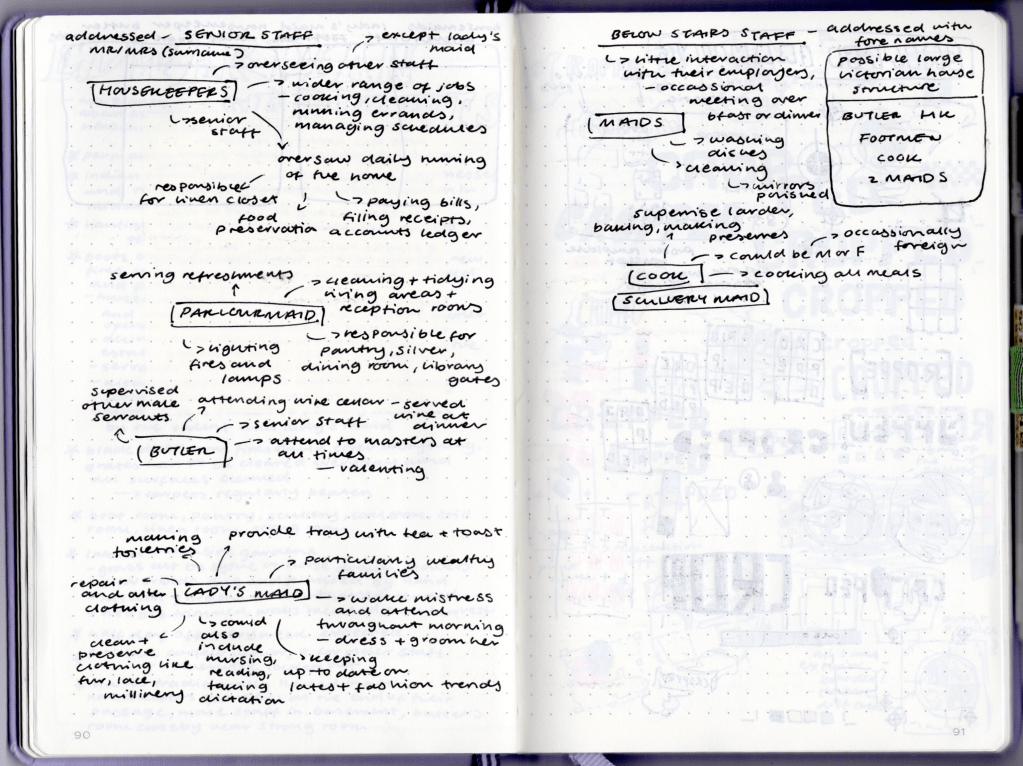 addressed - SENIOR STAFF
MR/MRS (surname)
> except lady's
maid
> overseeing other staff
HOUSEKEEPERS
> wider range of jobs
- cooking, cleaning,
running errands,
managing schedules
> senior
staff
oversaw daily running
of the home
responsible
for linen closet
food
preservation
> paying bills,
filing receipts,
accounts ledger
serving refreshments
> cleaning + tidying
living areas +
reception rooms
PARLOURMAID
> lighting
fires and
lamps
> responsible for
pantry, silver,
dining room, library
gates
supervised
other male
servants
attending wine cellar - served
wine at
dinner
BUTLER
> senior staff
> attend to masters at
all times
- valenting
making
toiletries
provide trays with tea + toast
> particularly wealthy
families
repair
and alter
clothing
LADY'S MAID
> wake mistress
and attend
throughout morning
- dress + groom her
clean +
preserve
clothing like
fur, lace,
millinery
> could
also
include
nursing,
reading,
taking
dictation
> keeping
up to date on
latest fashion trends
90
BELOW STAIRS STAFF - addressed with
forenames
> little interaction
with their employers,
- occassional
meeting over
bfast or dinner
possible large
victorian house
structure
BUTLER HK
FOOTMEN
COOK
2 MAIDS
MAIDS
> washing
dishes
> cleaning
> mirrors
polished
supervise larder,
baking, making
preserves
> occassionally
foreign
> could be M or F
COOK
> cooking all meals
SCULLERY MAID
91